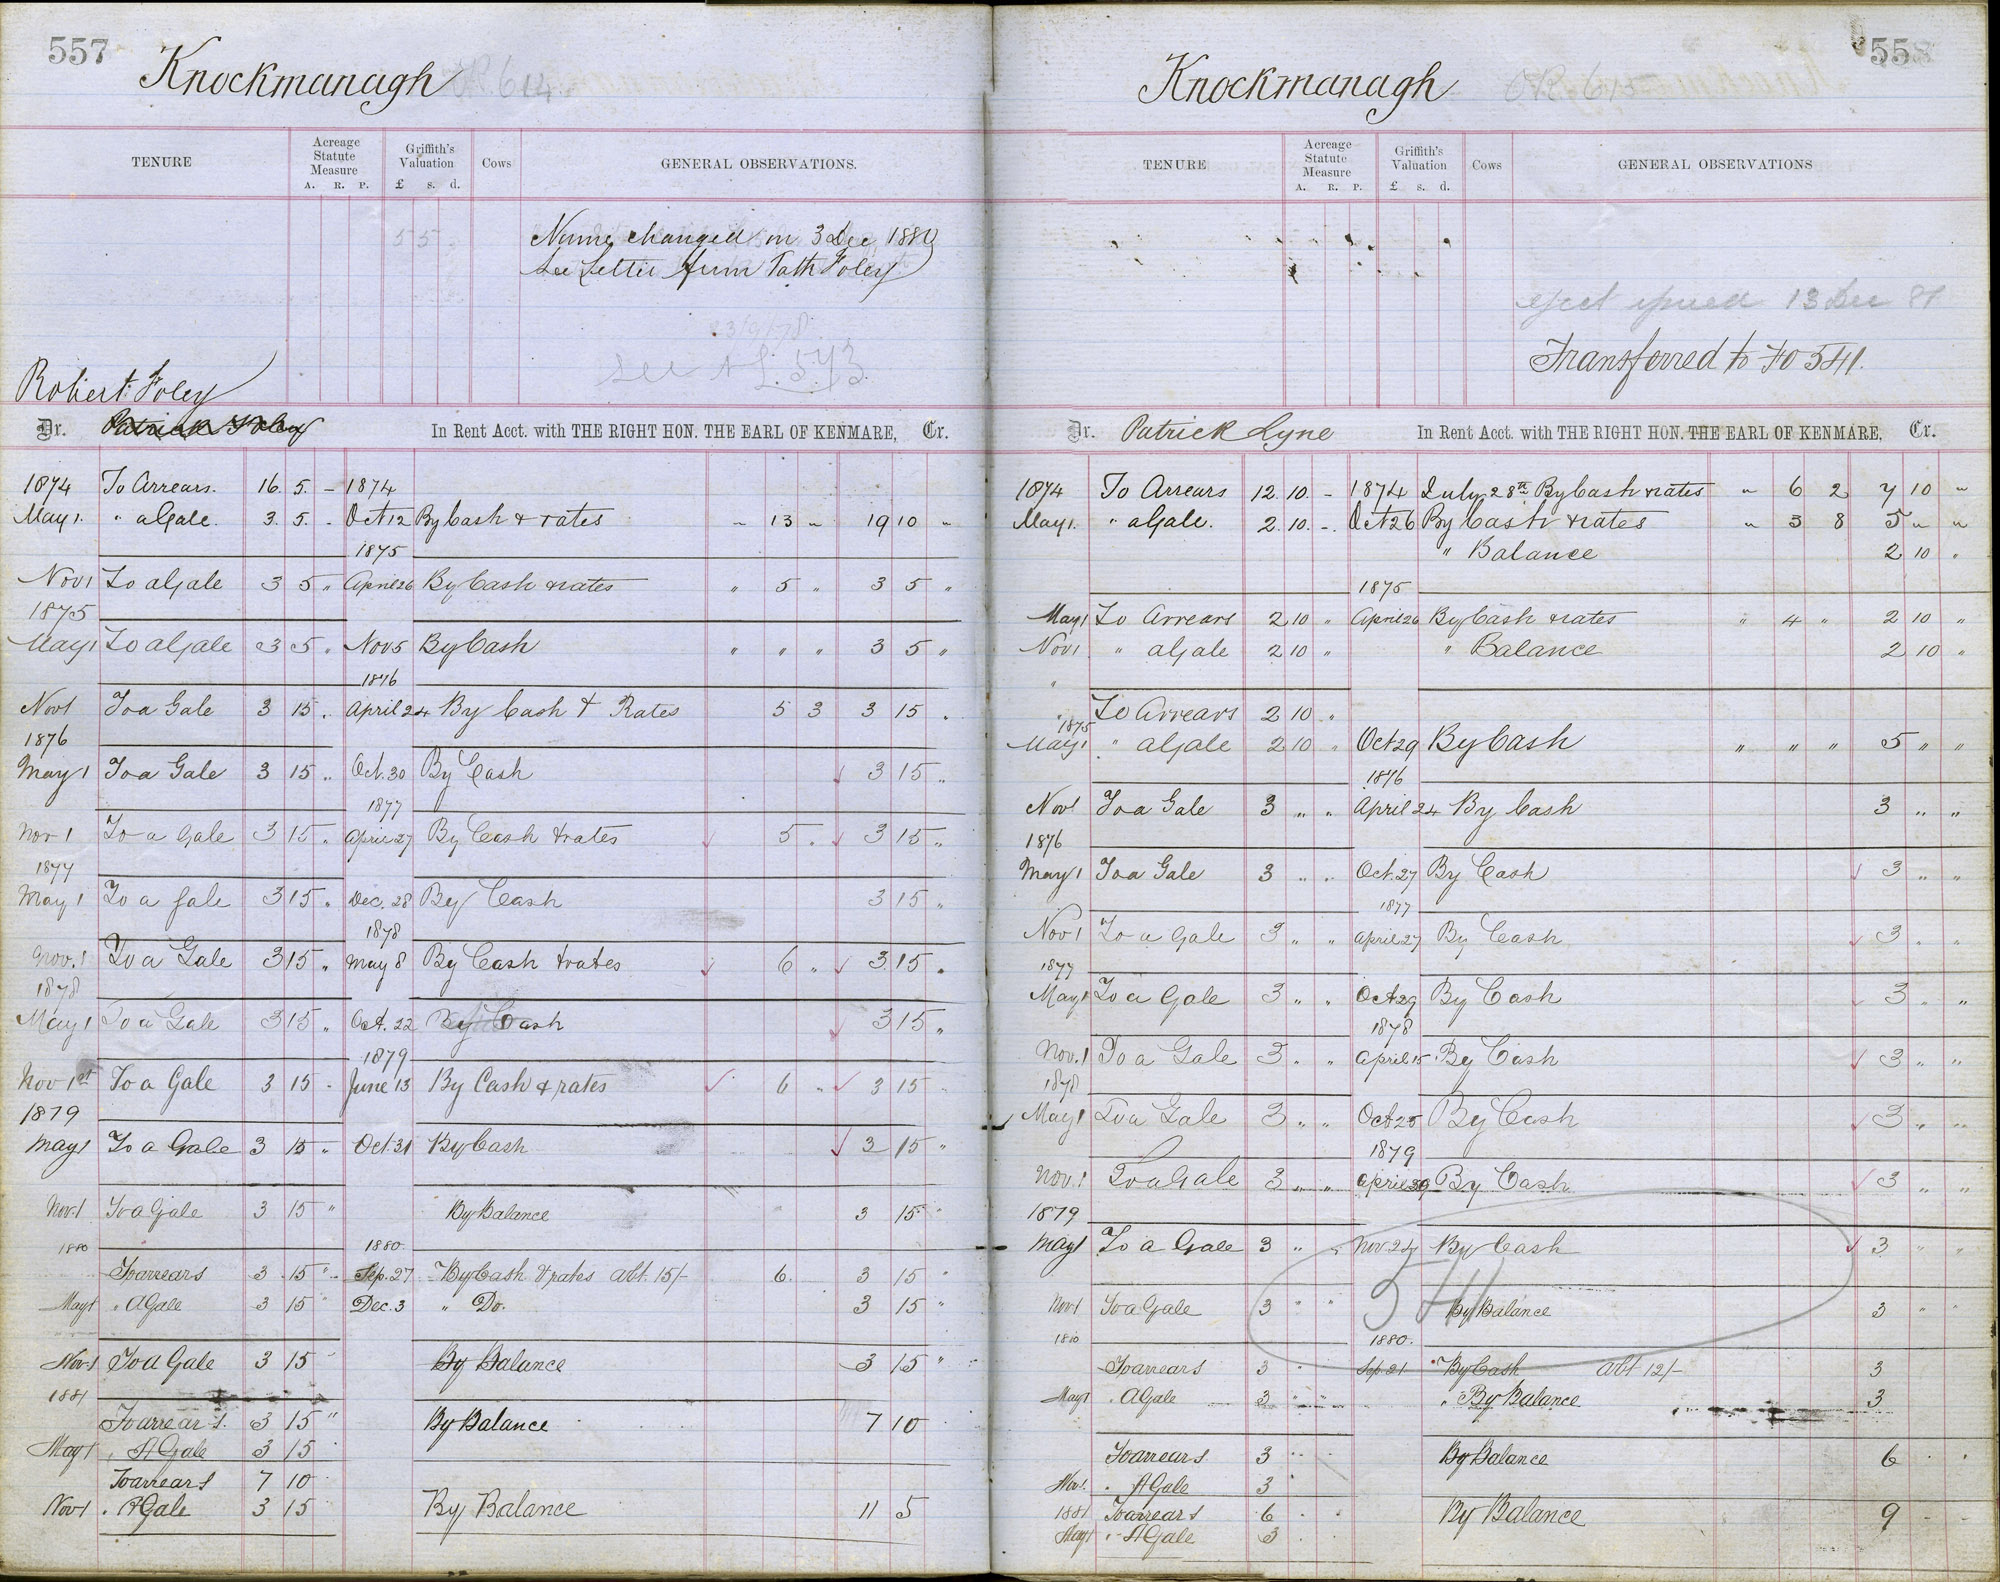 557
Knockmanagh
OR. 614
TENURE
Acreage Statute Measure
A. R. P.
Griffith's Valuation
£ s. d.
Cows
GENERAL OBSERVATIONS.
Name changed on 3 Dec 1880
See Letter from Path Foley
23/9/78
See N L. 543
Robert Foley
Dr. Patrick Foley In Rent Acct. with THE RIGHT HON. THE EARL OF KENMARE, Cr.
1874 To Arrears. 16. 5. - 1874
May 1. " a Gale. 3. 5. - Oct 12 By Cash & rates " 13 " 19 10 "
1875
Nov 1 To a Gale 3 5 " April 26 By Cash & rates " 5 " 3 5 "
1875
May 1 To a Gale 3 5 " Nov 5 By Cash " " " 3 5 "
1876
Nov 1 To a Gale 3 15 " April 24 By Cash & Rates 5 3 3 15 "
1876
May 1 To a Gale 3 15 " Oct. 30 By Cash 3 15 "
1877
Nov 1 To a Gale 3 15 " April 27 By Cash & rates 5 " 3 15 "
1877
May 1 To a Gale 3 15 " Dec. 28 By Cash 3 15 "
1878
Nov. 1 To a Gale 3 15 " May 8 By Cash & rates 6 " 3 15 "
1878
May 1 To a Gale 3 15 " Oct. 22 By Cash 3 15 "
1879
Nov 1st To a Gale 3 15 - June 13 By Cash & rates 6 " 3 15
1879
May 1 To a Gale 3 15 " Oct. 31 By Cash 3 15 "
Nov. 1 To a Gale 3 15 " By Balance 3 15 "
1880 1880
To arrears 3 15 " Sep. 27 By Cash & rates abt. 15/- 6 3 15 "
May 1 " A Gale 3 15 " Dec. 3 " Do. 3 15 "
Nov. 1 To a Gale 3 15 By Balance 3 15 "
1881
To arrears 3 15 " By Balance 7 10
May 1 " A Gale 3 15
To arrears 7 10
Nov 1 " A Gale 3 15 By Balance 11 5
558
Knockmanagh
OR 615
TENURE
Acreage Statute Measure
A. R. P.
Griffith's Valuation
£ s. d.
Cows
GENERAL OBSERVATIONS
eject issued 13 Dec 81
Transferred to Fo 541.
Dr. Patrick Lyne In Rent Acct. with THE RIGHT HON. THE EARL OF KENMARE, Cr.
1874 To Arrears 12. 10. - 1874 July 28th By Cash & rates " 6 2 7 10 "
May 1. " a Gale. 2. 10. - Oct 26 By Cash & rates " 3 8 5 " "
" Balance 2 10 "
1875
May 1 To Arrears 2 10 " April 26 By Cash & rates " 4 " 2 10 "
Nov 1 " a Gale 2 10 " " Balance 2 10 "
To Arrears 2 10 "
1875
May 1 " a Gale 2 10 " Oct 29 By Cash " " " 5 " "
1876
Nov 1 To a Gale 3 " " April 24 By Cash 3 " "
1876
May 1 To a Gale 3 " " Oct. 27 By Cash 3 " "
1877
Nov 1 To a Gale 3 " " April 27 By Cash 3 " "
1877
May 1 To a Gale 3 " " Oct 29 By Cash 3 " "
1878
Nov. 1 To a Gale 3 " " April 15 By Cash 3 " "
1878
May 1 To a Gale 3 " " Oct 25 By Cash 3 " "
1879
Nov. 1 To a Gale 3 " " April 29 By Cash 3 " "
1879
May 1 To a Gale 3 " " Nov. 24 By Cash 3 " "
541
Nov 1 To a Gale 3 " " By Balance 3 " "
1880 1880.
To arrears 3 " Sep. 21 By Cash abt 12/- 3
May 1 " A Gale 3 " " " By Balance 3
To arrears 3 " " By Balance 6
Nov. 1 " A Gale 3
1881 To arrears 6 By Balance 9
May 1 " A Gale 3